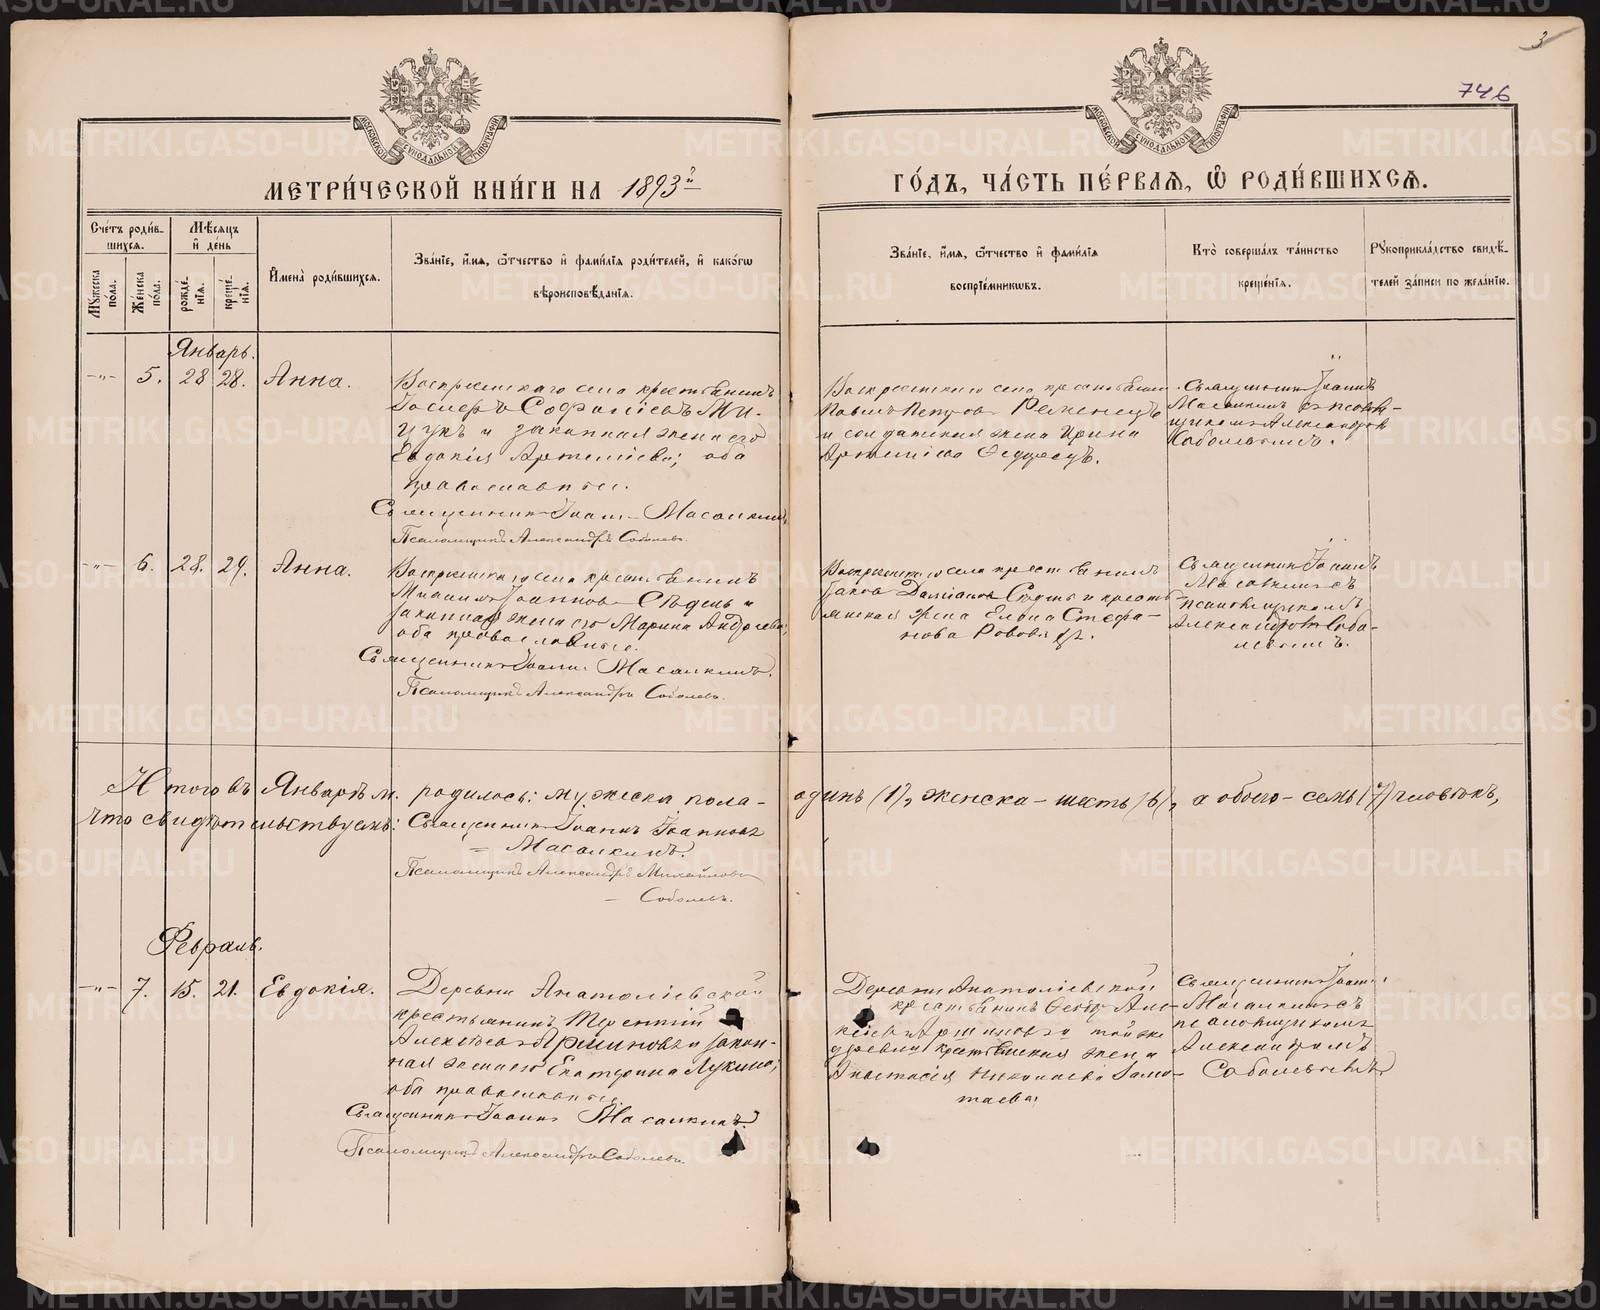 3
746
МЕТРИ́ЧЕСКОЙ КНИ́ГИ НА 1893й
ГО́ДЪ, ЧА́СТЬ ПЕ́РВАЯ, Ѡ РОДИ́ВШИХСЯ.
МОСКОВСКОЙ СѴНОДАЛЬНОЙ ТИПОГРАФІИ
МОСКОВСКОЙ СѴНОДАЛЬНОЙ ТИПОГРАФІИ
Сче́тъ роди́в-
шихся.
Му́жеска по́ла.
Же́нска по́ла.
Мѣ́сяцъ и де́нь
рожде́-
нія.
креще́-
нія.
И҆мена̀ роди́вшихся.
Зва́ніе, и҆́мя, ѻ҆́тчество и҆ фами́лїя роди́телей, и҆ како́гѡ
вѣроисповѣ́данїя.
Зва́ніе, и҆́мя, ѻ҆́тчество и҆ фами́лїя
воспрїе́мниковъ.
Кто̀ соверша́лъ та́инство
креще́нїя.
Рꙋкоприкла́дство свидѣ́-
телей за́писи по жела́нїю.
Январь.
-"- 5. 28 28. Анна.
Воскресенскаго села крестьянинъ
и законная жена его
Евдокія Артеміева; оба
православные.
Священникъ Іоаннъ Масалкинъ
Псаломщикъ Александръ Соболевъ.
Воскресенскаго села крестьянинъ
Павелъ Петровъ Ременецъ
и солдатская жена Ирина
Артеміева
Священникъ Іоаннъ
Масалкинъ съ псалом-
щикомъ Александромъ
Соболевымъ.
-"- 6. 28. 29. Анна.
Воскресенскаго села крестьянинъ
Іоанновъ и
законная жена его Марина Андреева;
оба православные.
Священникъ Іоаннъ Масалкинъ.
Псаломщикъ Александръ Соболевъ.
Воскресенскаго села крестьянинъ
Даміановъ и кресть-
янская жена Елена Стефа-
нова
Священникъ Іоаннъ
Масалкинъ съ
псаломщикомъ
Александромъ Собо-
левымъ.
Итого въ Январѣ м. родилось: мужеска пола - одинъ (1), женска - шесть (6), а обоего - семь (7) человѣкъ,
что свидѣтельствуемъ: Священникъ Іоаннъ Іоанновъ
- Масалкинъ.
Псаломщикъ Александръ Михайловъ
- Соболевъ.
Февраль.
-"- 7. 15. 21. Евдокія.
Деревни Анатоліевской
крестьянинъ Терентій
Алексѣевъ Аршиновъ и закон-
ная жена его Екатерина Лукина;
оба православные.
Священникъ Іоаннъ Масалкинъ.
Псаломщикъ Александръ Соболевъ.
Деревни Анатоліевской
крестьянинъ Але-
ксѣевъ Аршиновъ и той же
деревни крестьянская жена
Анастасія Николаева
Священникъ Іоаннъ
Масалкинъ съ
псаломщикомъ
Александромъ
Соболевымъ
METRIKI.GASO-URAL.RU